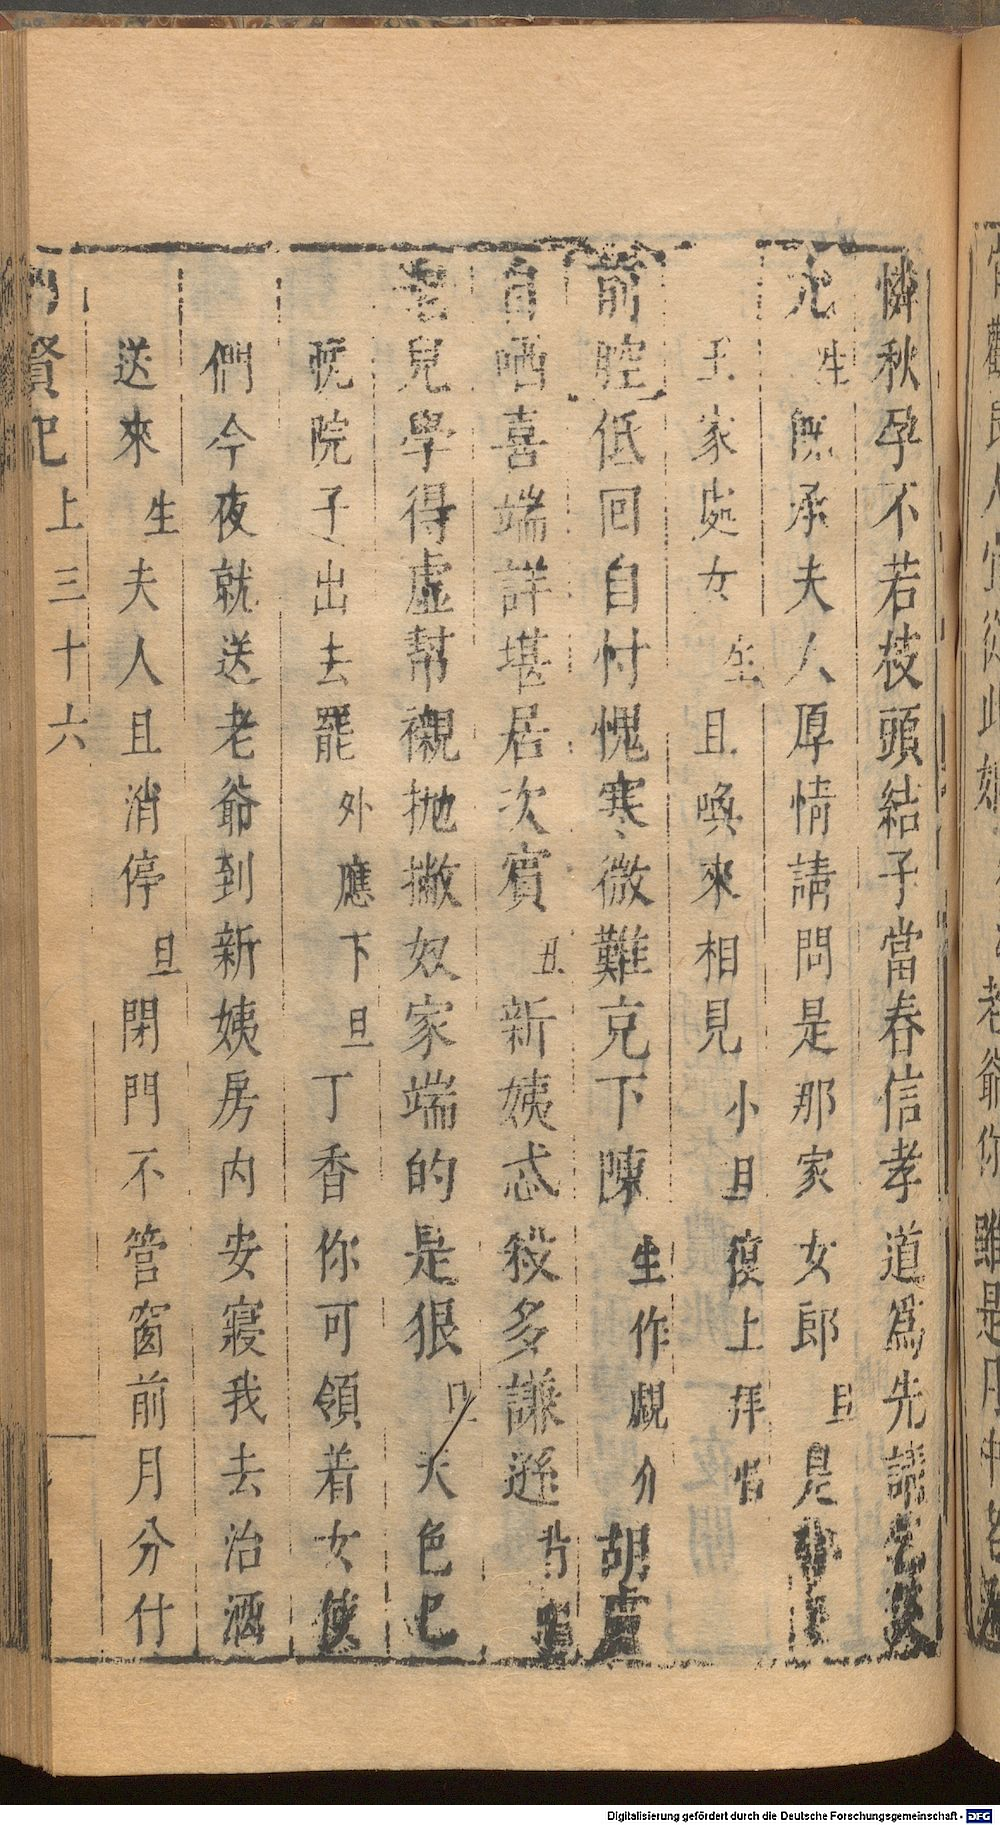 憐秋孕不若枝頭結子當春信孝道爲先請老
允 生 旣承夫人厚情請問是那家女郎 旦 是
王家處女 生 且喚來相見 小旦復上拜
前腔 低回自忖愧寒微難克下陳 生作覷介 胡盧
自哂喜端詳堪居次賓 丑 新姨忒殺多謙遜 背
老兒學得虛幫襯拋撇奴家端的是狠 旦 天色已
晚院子出去罷 外應下 旦 丁香你可領着女使
們今夜就送老爺到新姨房內安寢我去治酒
送來 生 夫人且消停 旦 閉門不管窗前月分付
賢記 上三十六
老爺你 雖是
Digitalisierung gefördert durch die Deutsche Forschungsgemeinschaft - DFG